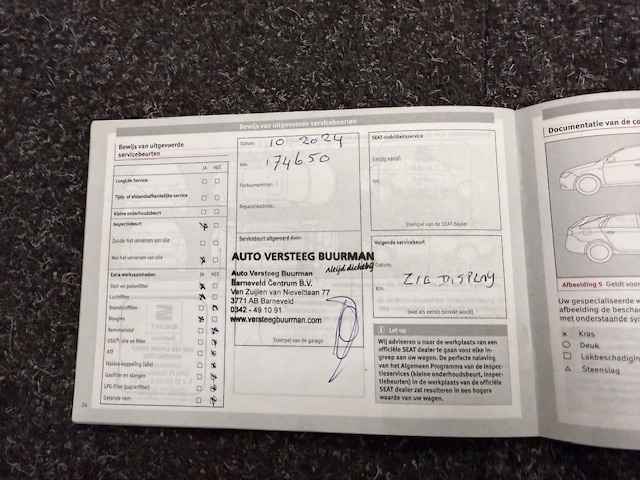 Bewijs van uitgevoerde servicebeurten
Bewijs van uitgevoerde
servicebeurten
JA NEE
LongLife Service
Tijds- of afstandsafhankelijke service
Kleine onderhoudsbeurt
Inspectiebeurt
Zonder het verversen van olie
Met het verversen van olie
Extra werkzaamheden JA NEE
Stof- en pollenfilter
Luchtfilter
Brandstoffilter
Bougies
Remvloeistof
ATF
Haldex-koppeling (olie)
LPG-filter (papierfilter)
Getande riem
24
Datum: 10-2024
km: 174650
Servicebeurt uitgevoerd door:
AUTO VERSTEEG BUURMAN
Altijd dichtbij
Auto Versteeg Buurman
Barneveld Centrum B.V.
Van Zuijlen van Nieveltlaan 77
3771 AB Barneveld
0342 - 49 10 91
www.versteegbuurman.com
Stempel van de garage
SEAT mobiliteitsservice
Geldig vanaf:
tot
Stempel van de SEAT dealer
Volgende servicebeurt
Datum:
Km: ZIE DISPLAY
(wat als eerste bereikt wordt)
Let op
Wij adviseren u naar de werkplaats van een
officiële SEAT dealer te gaan voor elke in-
greep aan uw wagen. De perfecte naleving
van het Algemeen Programma van de inspec-
tieservices (kleine onderhoudsbeurt, inspec-
tiebeurten) in de werkplaats van de officiële
SEAT dealer zal resulteren in een hogere
waarde van uw wagen.
Documentatie van de co
Afbeelding 5 Geldt voor
Uw gespecialiseerde v
afbeelding de bescha
met onderstaande sy
× Kras
○ Deuk
□ Lakbeschadiging
△ Steenslag